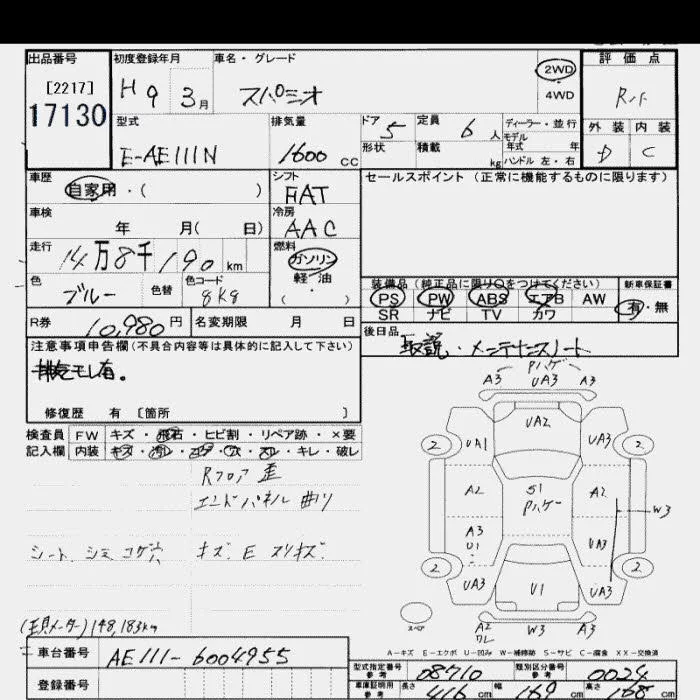 出品番号 初度登録年月 車名・グレード 2WD 評価点
[2217] H 9 3月 スパシオ 4WD R
17130 型式 排気量 ドア 5 定員 6人 ディーラー・並行 外装 内装
E-AE111N 1600 CC 形状 積載 kg モデル年式 年 D C
ハンドル 左・右
車歴 自家用・( ) シフト FAT セールスポイント(正常に機能するものに限ります)
車検 年 月( 日) 冷房 AAC
走行 14万8千190km 燃料 ガソリン 軽油 ( ・ )
色 ブルー 色替 色コード 8K9
装備品(純正品に限り○をつけてください) 新車保証書
PS PW ABS エアB AW 有・無
SR ナビ TV カワ
R券 10,980円 名変期限 月 日 後日品
取説・メンテナンスノート
注意事項申告欄(不具合内容等は具体的に記入して下さい)
修復歴 有 [箇所 ]
検査員 FW キズ・飛石・ヒビ割・リペア跡・×要
記入欄 内装 キズ・汚レ・コゲ・穴・スレ・キレ・破レ
Rフロア 歪
エンドパネル曲り
シート シミ コゲ穴 キズ.E スリキズ
Pハゲ
A3 UA3 A3
UA2
2 UA1 UA3 2
A2 S1 A2
Pハゲ W3
A3
U1 UA3
2 2
UA3 U1 UA3
スペア A2 ワレ W3 A3
A－キズ E－エクボ U－凹み W－補修跡 S－サビ C－腐食 XX－交換済
(現メーター)148,183km
車台番号 AE111-6004955
登録番号
型式指定番号 参考 08710 類別区分番号 参考 0024
車庫証明用 参考 長さ 416cm 幅 169cm 高さ 168cm